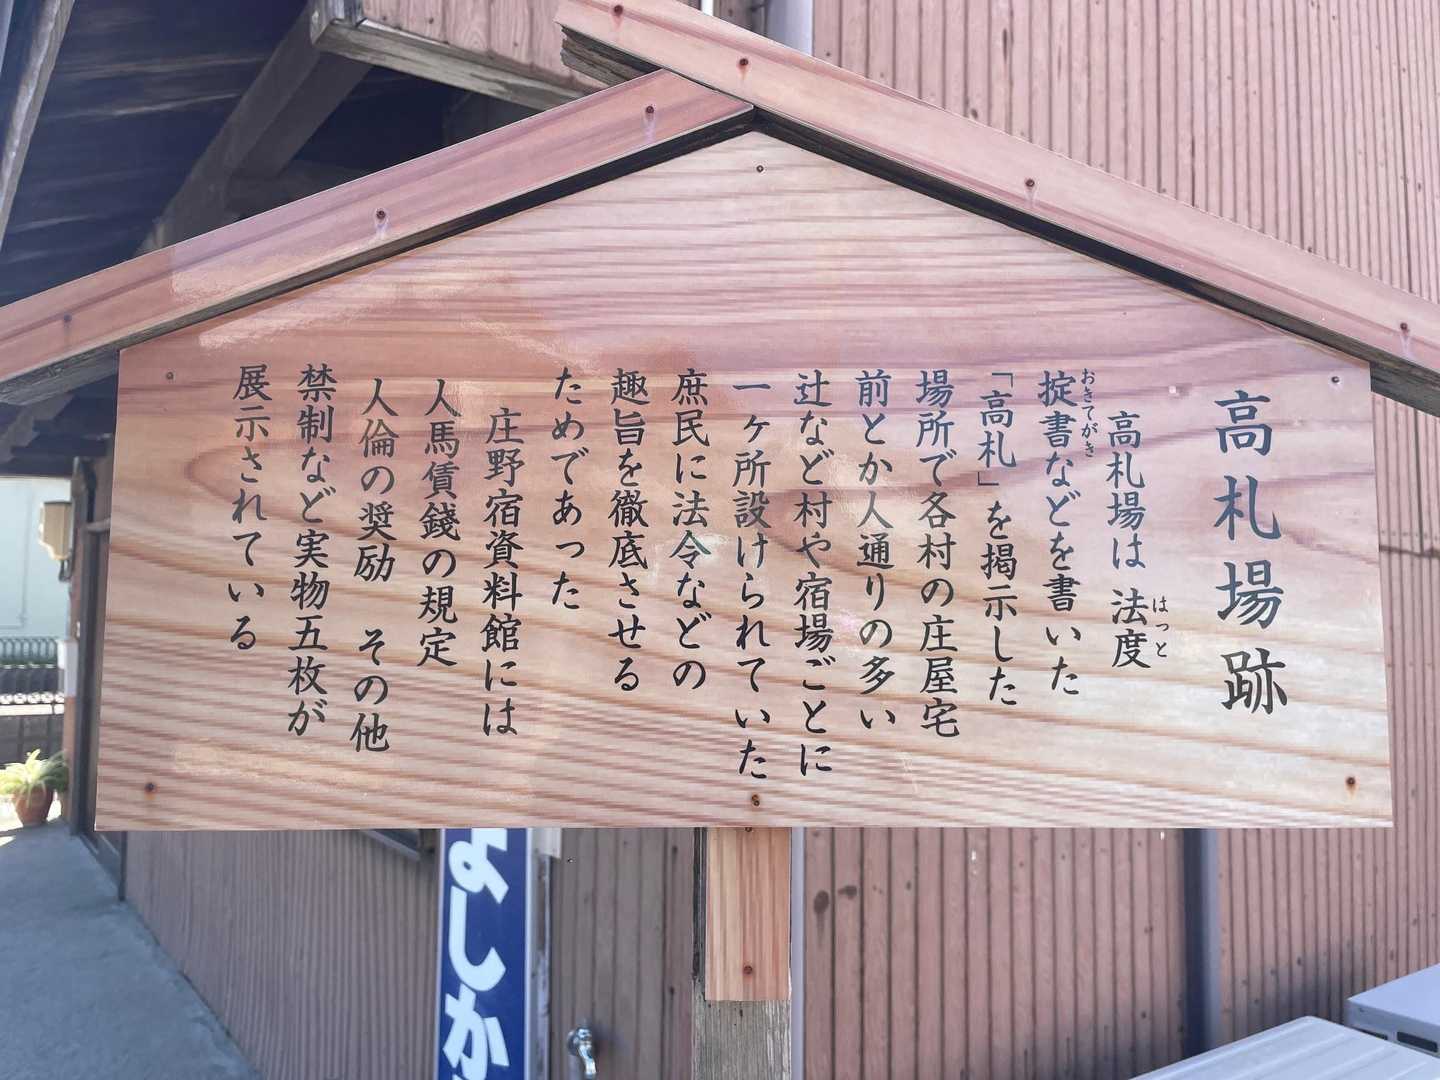 高札場跡
高札場は 法度
掟書などを書いた
「高札」を掲示した
場所で各村の庄屋宅
前とか人通りの多い
辻など村や宿場ごとに
一ヶ所設けられていた
庶民に法令などの
趣旨を徹底させる
ためであった
庄野宿資料館には
人馬賃錢の規定
人倫の奨励 その他
禁制など実物五枚が
展示されている
はっと
おきてがき
よしか